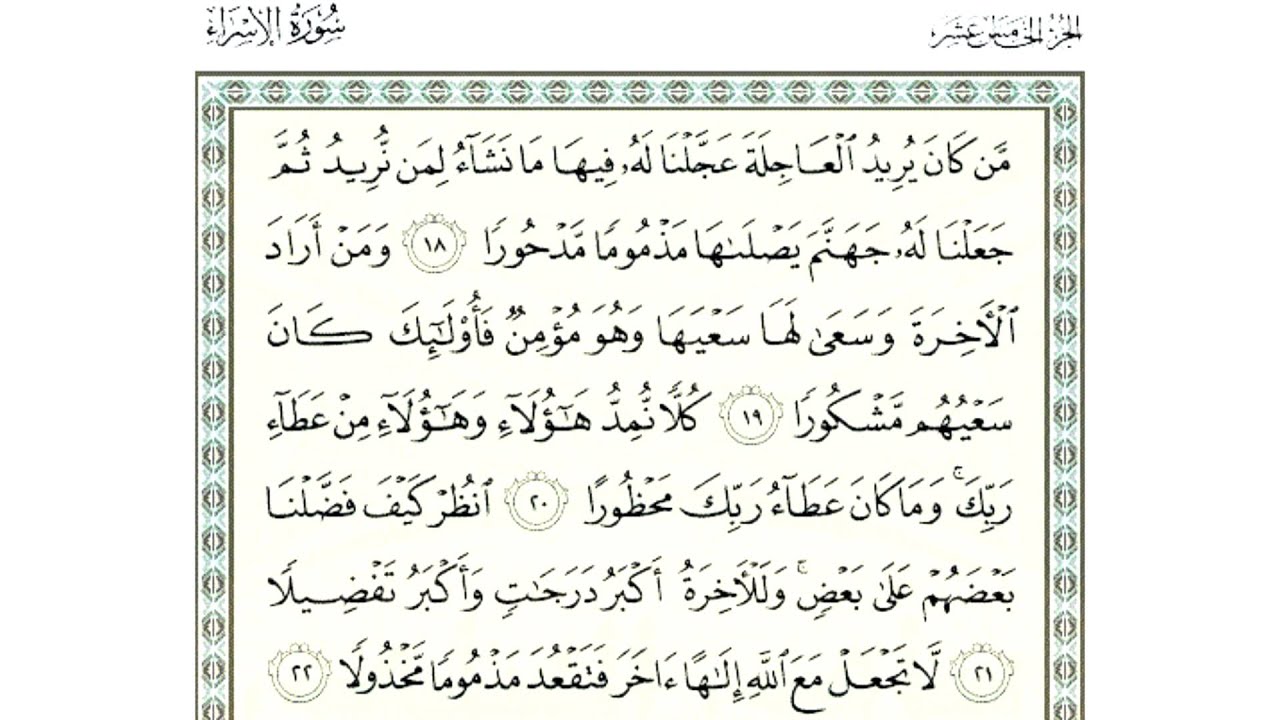 الجزء الخامس عشر
سورة الإسراء
مَّن كَانَ يُرِيدُ ٱلْعَاجِلَةَ عَجَّلْنَا لَهُۥ فِيهَا مَا نَشَآءُ لِمَن نُّرِيدُ ثُمَّ
جَعَلْنَا لَهُۥ جَهَنَّمَ يَصْلَىٰهَا مَذْمُومًا مَّدْحُورًا ١٨ وَمَنْ أَرَادَ
ٱلْـَٔاخِرَةَ وَسَعَىٰ لَهَا سَعْيَهَا وَهُوَ مُؤْمِنٌ فَأُو۟لَـٰٓئِكَ كَانَ
سَعْيُهُم مَّشْكُورًا ١٩ كُلًّا نُّمِدُّ هَـٰٓؤُلَآءِ وَهَـٰٓؤُلَآءِ مِنْ عَطَآءِ
رَبِّكَ ۚ وَمَا كَانَ عَطَآءُ رَبِّكَ مَحْظُورًا ٢٠ ٱنظُرْ كَيْفَ فَضَّلْنَا
بَعْضَهُمْ عَلَىٰ بَعْضٍ ۚ وَلَلْـَٔاخِرَةُ أَكْبَرُ دَرَجَـٰتٍ وَأَكْبَرُ تَفْضِيلًا
٢١ لَّا تَجْعَلْ مَعَ ٱللَّهِ إِلَـٰهًا ءَاخَرَ فَتَقْعُدَ مَذْمُومًا مَّخْذُولًا ٢٢